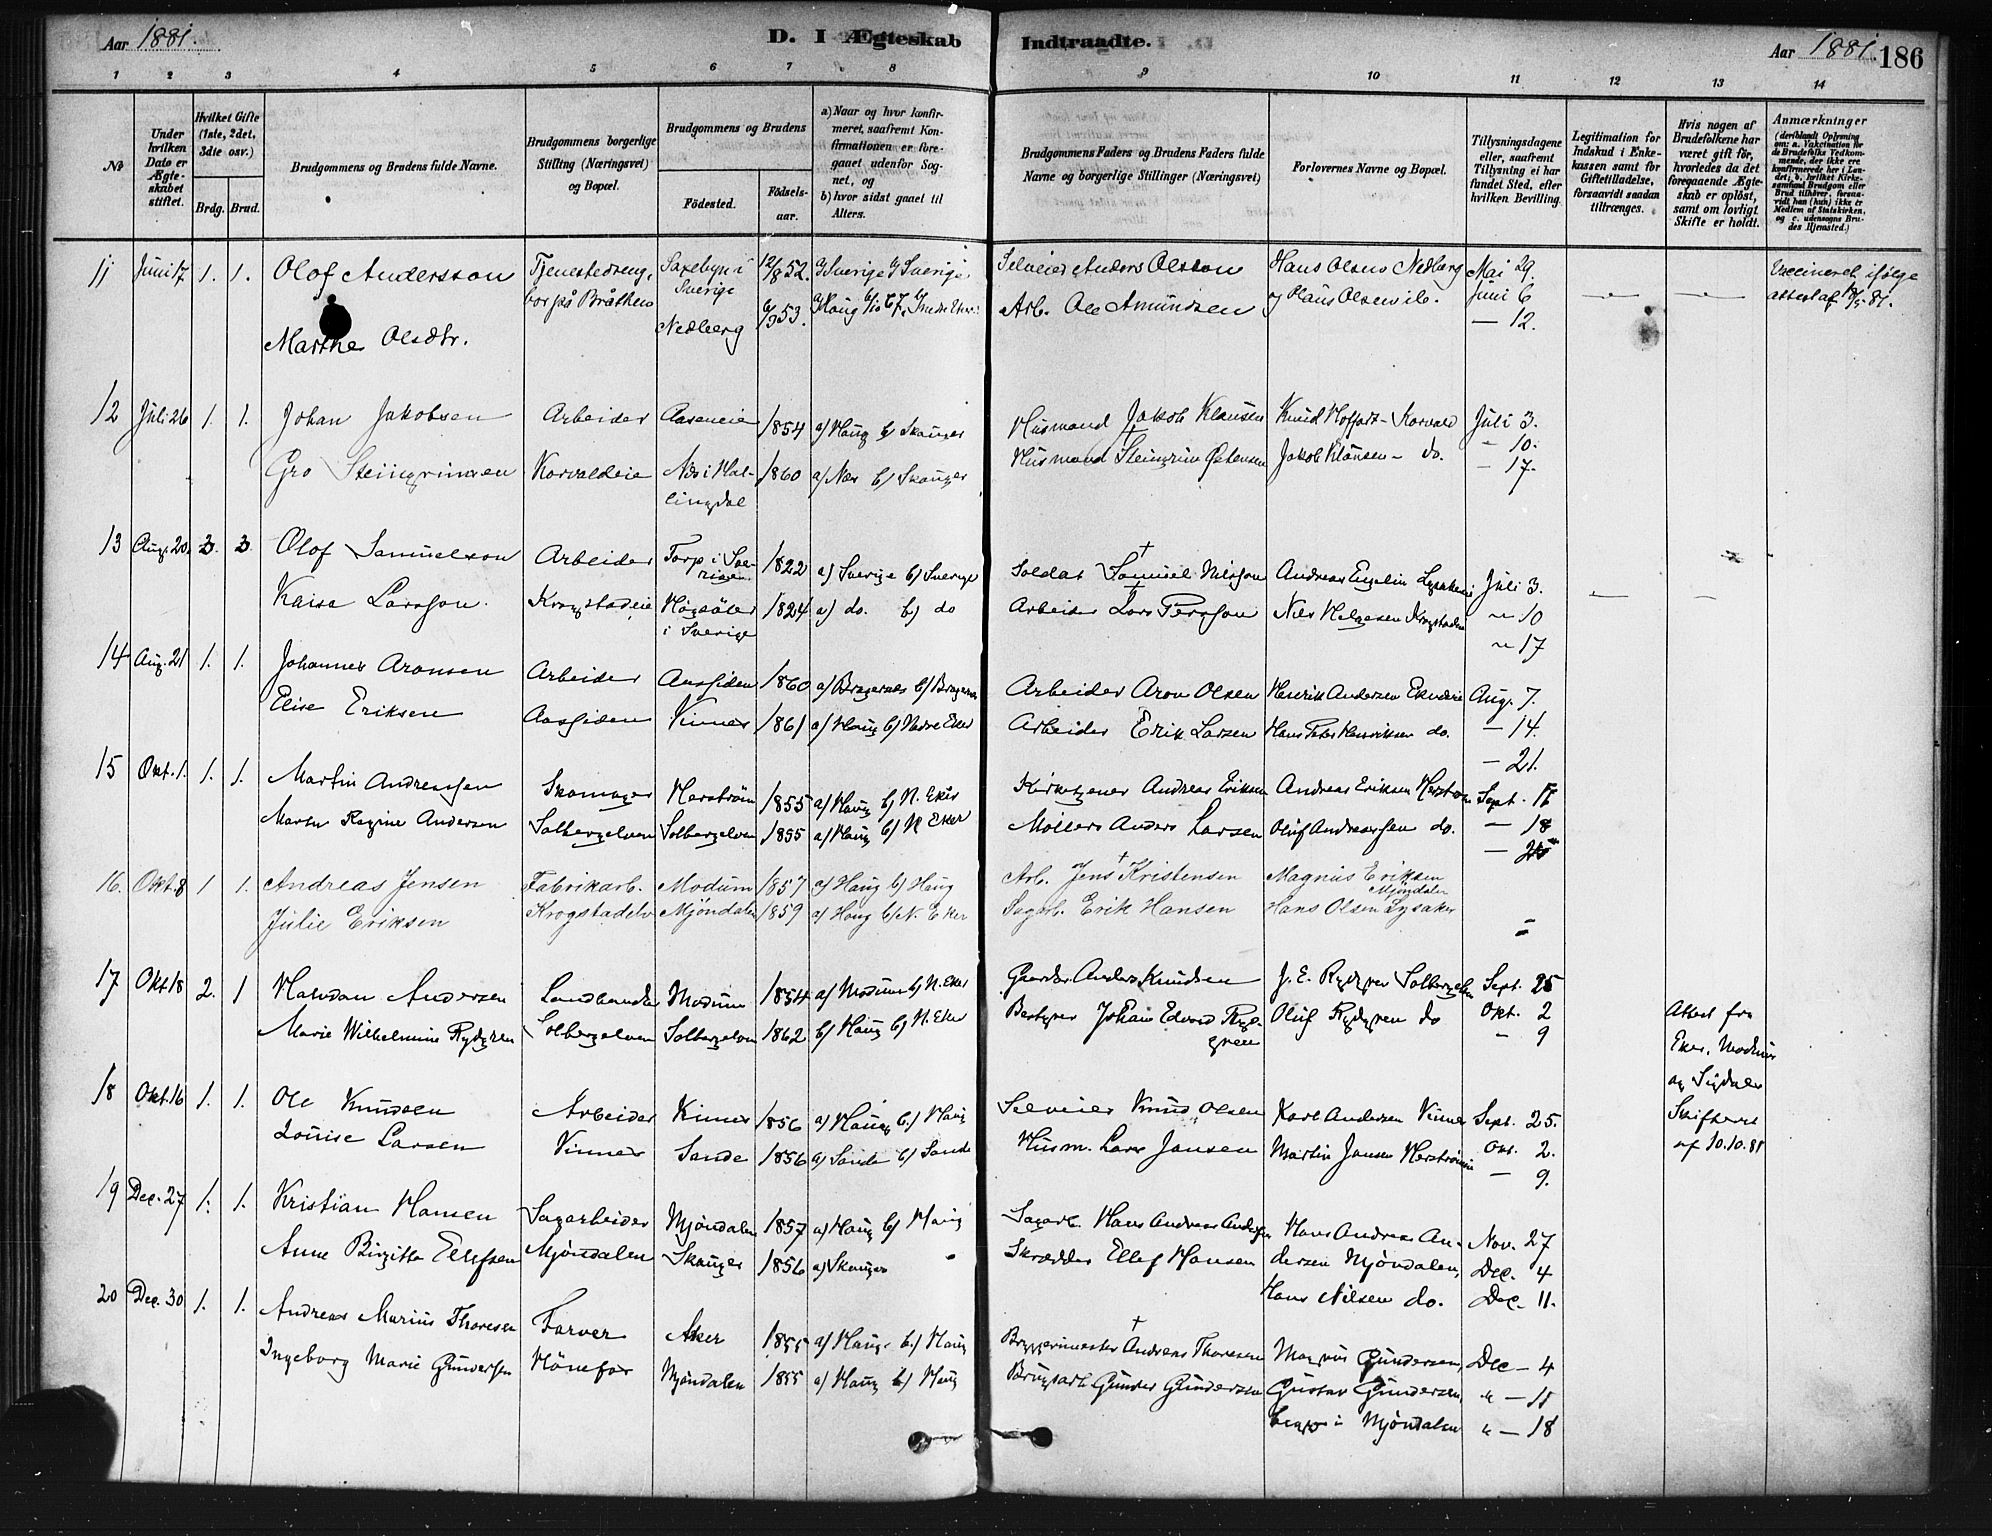 Aar 1881. D. I Ægteskab Indtraadte. Aar 1881. 186
1 2 3 4 5 6 7 8 9 10 11 12 13 14
No
Under hvilken Dato er Ægteskabet stiftet.
Hvilket Gifte (1ste, 2det, 3die osv.)
Brdg. Brud.
Brudgommens og Brudens fulde Navne.
Brudgommens borgerlige Stilling (Næringsvei) og Bopæl.
Brudgommens og Brudens
Fødested. Fødselsaar.
a) Naar og hvor konfirmeret, saafremt Konfirmationen er foregaaet udenfor Sognet, og
b) hvor sidst gaaet til Alters.
Brudgommens Faders og Brudens Faders fulde Navne og borgerlige Stillinger (Næringsvei)
Forlovernes Navne og Bopæl.
Tillysningsdagene eller, saafremt Tillysning ei har fundet Sted, efter hvilken Bevilling.
Legitimation for Indskud i Enkekassen samt for Giftetilladelse, forsaavidt saadan tiltrænges.
Hvis nogen af Brudefolkene har været gift før, hvorledes da det foregaaende Ægteskab er opløst, samt om lovligt Skifte er holdt.
Anmærkninger
(deriblandt Oplysning om: a. Vaccination for de Brudefolks Vedkommende, der ikke ere konfirmerede her i Landet; b. hvilket Kirkesamfund Brudgom eller Brud tilhører, forsaavidt han (hun) ikke er Medlem af Statskirken, og c. udensogns Brudes Hjemsted.)
11 Juni 17. 1. 1. Olof Andersson Tjenestedreng, Saxebyn i Sverige 12/8 52. a) Sverige b) Sverige Selveier Anders Olsson Hans Olsen Nedberg Mai 29. Vaccineret ifølge
Marthe Olsdtr. bor på Bråthen Nedberg 6/9 53. a) Haug Arb. Ole Amundsen og Klaus Olsen ib. Juni 6 attest af
— 12.
12 Juli 26 1. 1. Johan Jakobsen Arbeider Aaseneie 1854 a) Haug b) Skouger Husmand Jakob Klausen Knud Hoffart - Korvald Juli 3.
- 10.
Gro Steingrimsen Korvaldeie Næs i Hallingdal 1860 a) Næs b) Skouger Husmand Steingrim Østensen Jakob Klausen - do. - 17.
13 Aug. 20. Olof Samuelsson Arbeider Torp i Sverige 1822 a) Sverige b) Sverige Soldat Samuel Nilsson Andreas Engelin Juli 3.
Kaisa Larsson. Krogstadeie i Sverige 1824 a) do. b) do Arbeider Lars Persson Nils Helgesen Krogstadeie " 10
" 17
14 Aug. 21 1. 1. Johannes Aronsen Arbeider Aassiden 1860 a) Bragernes b) Bragernes Arbeider Aron Olsen Henrik Andersen Aug. 7.
Elise Eriksen Aassiden Vinnes 1861 a) Haug b) Nedre Eker Arbeider Erik Larsen Hans Peter Henriksen do. — 14.
— 21.
15 Okt. 1. 1. 1. Martin Andreassen Skomager Herstrøm 1855 a) Haug b) N. Eker Kirketjener Andreas Eriksen Andreas Eriksen Herstrøm Sept. 11
Maren Regine Andersen Solbergelven Solbergelven 1855 a) Haug b) N. Eker Møllers Anders Larsen Oluf Andreassen do. — 18
— 25
16. Okt. 8 1 1. Andreas Jensen Fabrikarb. Modum 1857 a) Haug b) Haug Arb. Jens Kristensen Magnus Eriksen Mjøndalen
Julie Eriksen Krogstadelv Mjøndalen 1859 a) Haug b) N. Eker Sagarb. Erik Hansen Hans Olsen Lysaker
17 Okt 18 2. 1 Halvdan Andersen Landhandler Modum 1854 a) Modum b) N. Eker Gaardbr. Anders Knudsen J. E. Rydgren Solbergelven Sept. 25
Marie Wilhelmine Rydgren Solbergelven Solbergelven 1862 b) Haug b) N. Eker Bestyrer Johan Edvard Rydgren Oluf Rydgren do Okt. 2 Attest fra
- 9 Eker, Modum
og Sigdals
Skifteret
af 10.10.81
18 Okt. 16 1. 1. Ole Knudsen Arbeider Vinnes 1856 a) Haug b) Haug Selveier Knud Olsen Karl Andersen Vinnes Sept. 25.
Louise Larsen Vinnes Sande 1856 a) Sande b) Sande Husm. Lars Jansen Martin Jansen Okt. 2.
— 9.
19 Dec. 27 1. 1. Kristian Hansen Sagarbeider Mjøndalen 1857 a) Haug b) Haug Sagarb. Hans Andreas Andersen Hans Andreas An- Nov. 27
Anne Birgitte Ellefsen Mjøndalen Skouger 1856 a) Skouger Skrædder Ellef Hansen dersen Mjøndalen, Dec. 4
Hans Nilsen do. Dec. 11.
20 Dec. 30 1. 1. Andreas Marius Thoresen Farver Aker 1855 a) Haug b) Haug Bryggerimester Andreas Thoresen Magnus Gundersen, Dec — 4
Ingeborg Marie Gundersen Hønefos Mjøndalen 1855 a) Haug b) Haug Brugsarb. Gunder Gundersen Gustav Gundersen, " — 11
begge i Mjøndalen " — 18